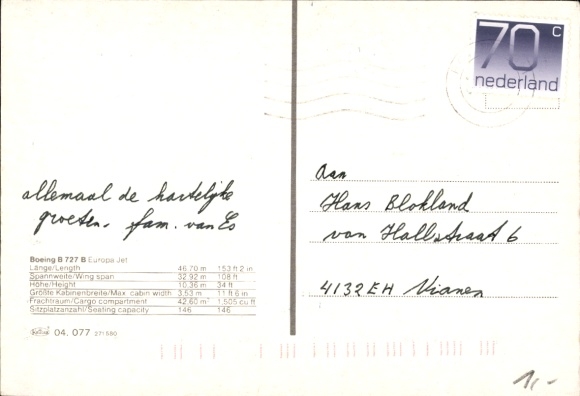 70 c
nederland
allemaal de hartelijke
groeten. fam. van Es
Boeing B 727 B Europa Jet
Länge/Length 46.70 m 153 ft 2 in
Spannweite/Wing span 32.92 m 108 ft
Höhe/Height 10.36 m 34 ft
Größte Kabinenbreite/Max. cabin width 3.53 m 11 ft 6 in
Frachtraum/Cargo compartment 42.60 m³ 1,505 cu ft
Sitzplatzanzahl/Seating capacity 146 146
04. 077 271580
Aan
Hans Blokland
van Hallstraat 6
4132EH Vianen
1,-